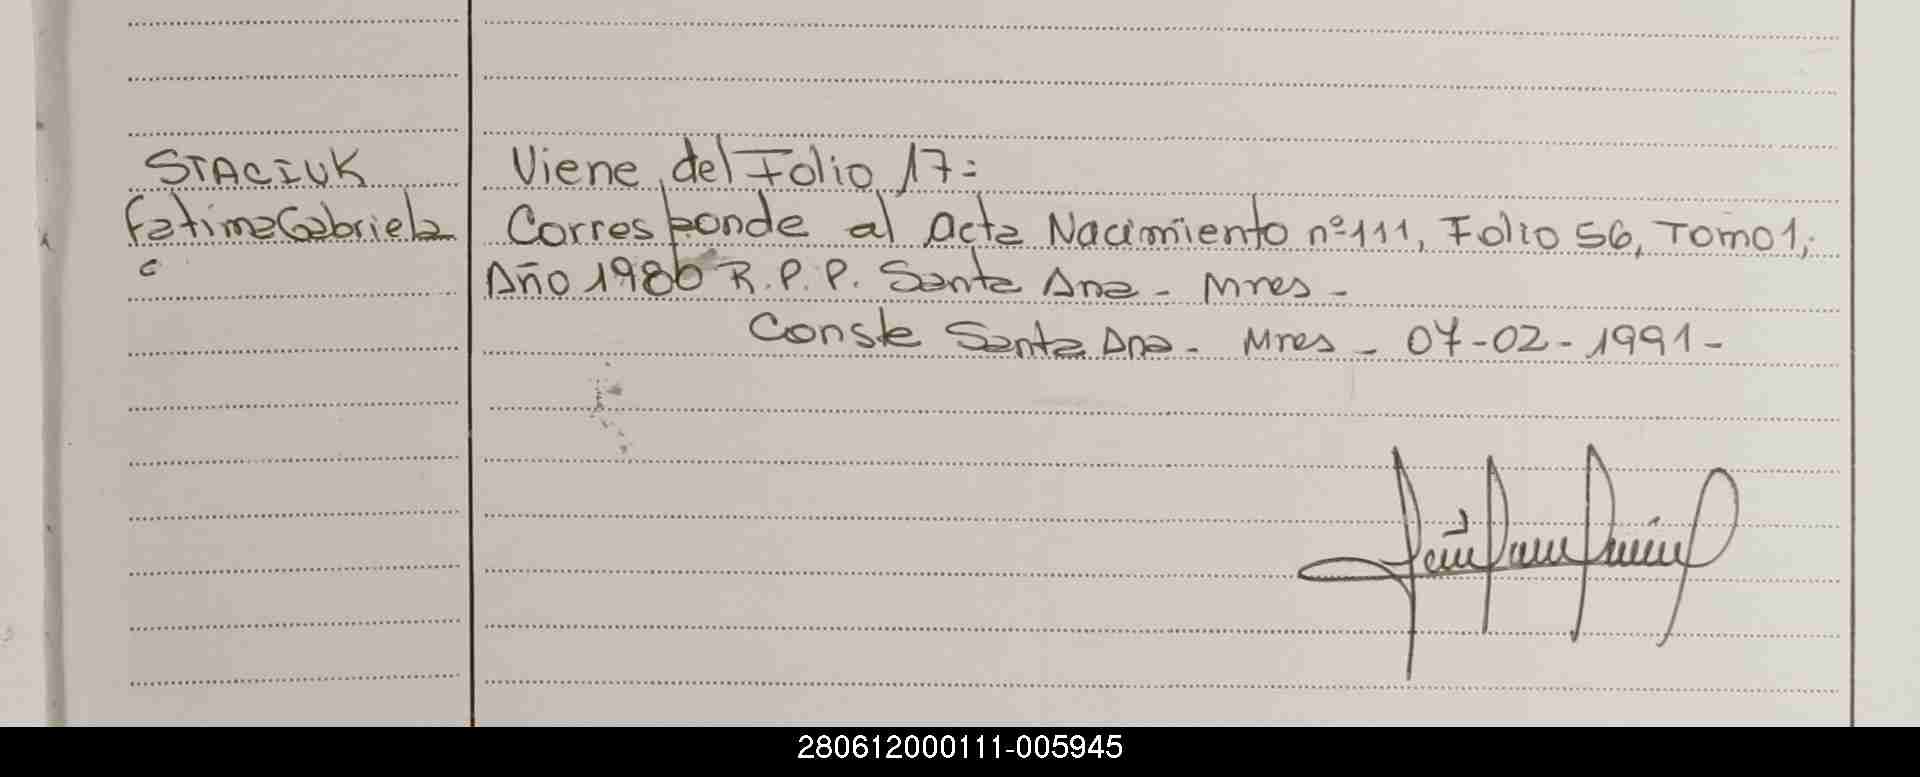 STACIUK
Fatima Gabriela
c
Viene del Folio 17:
Corresponde al Acta Nacimiento nº 111, Folio 56, Tomo 1,
Año 1980 R.P.P. Santa Ana - Mnes -
Conste Santa Ana - Mnes - 07-02-1991-
280612000111-005945